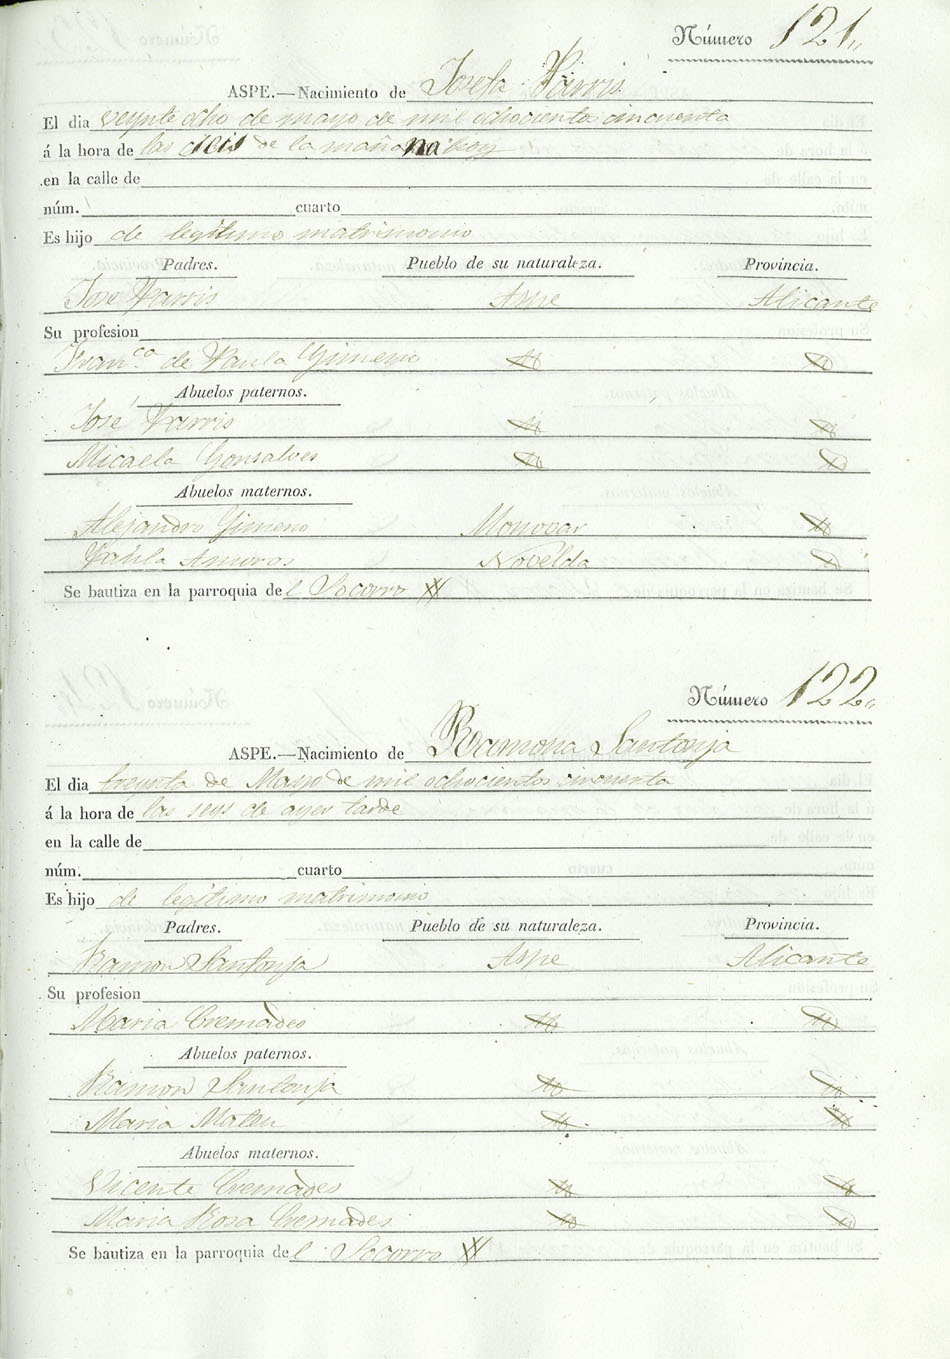 Número 121
ASPE.—Nacimiento de Josefa Parris
El dia veynte ocho de mayo de mil ochocientos cincuenta
á la hora de las de la mañana hoy
en la calle de
núm. cuarto
Es hijo de legitimo matrimonio
Padres. Pueblo de su naturaleza. Provincia.
Jose Parris Aspe Alicante
Su profesion
Fran.ca de Paula Gimeno
Abuelos paternos.
José Parris
Micaela Gonsalves
Abuelos maternos.
Alejandro Gimeno Monovar
Paula Amoros Novelda
Se bautiza en la parroquia del Socorro
Número 122
ASPE.—Nacimiento de Ramona Santonja
El dia treynta de Mayo de mil ochocientos cincuenta
á la hora de las seys de ayer tarde
en la calle de
núm. cuarto
Es hijo de legitimo matrimonio
Padres. Pueblo de su naturaleza. Provincia.
Ramon Santonja Aspe Alicante
Su profesion
Maria Cremades
Abuelos paternos.
Ramon Santonja
Maria Mateu
Abuelos maternos.
Vicente Cremades
Maria Rosa Cremades
Se bautiza en la parroquia del Socorro